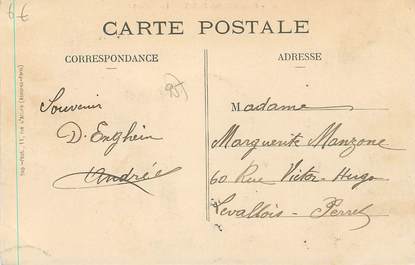 6€
CARTE POSTALE
CORRESPONDANCE
ADRESSE
Souvenir
D'Enghein
Andrée
Madame
Marguerite Manzone
60 Rue Victor-Hugo
Levallois-Perret